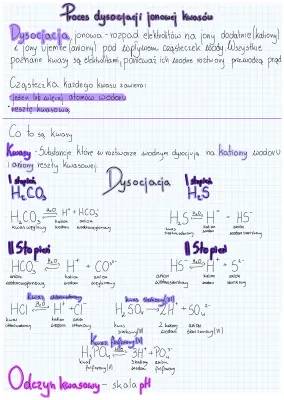 Proces dysocjacji jonowej kwasów
Dysocjacja jonowa - rozpad elektrolitów na jony dodatnie (kationy)
i jony ujemne (aniony) pod wpływem cząsteczek wody. Wszystkie
poznane kwasy są elektrolitami, ponieważ ich wodne roztwory przewodzą prąd
Cząsteczka każdego kwasu zawiera:
- jeden lub więcej atomów wodoru
- resztę kwasową
Co to są kwasy
Kwasy - Substancje które w roztworze wodnym dysocjują na kationy wodoru
i aniony reszty kwasowej
Dysocjacja
I stopień
H₂CO₃
H₂CO₃ ⇌ H⁺ + HCO₃⁻
kwas węglowy kation wodoru anion wodorowęglanowy
I stopień
H₂S
H₂S ⇌ H⁺ - HS⁻
kwas siarkowodorowy kation wodoru anion
II Stopień
HCO₃⁻ ⇌ H⁺ + CO²⁻
anion wodorowęglanowy kation wodoru anion węglanowy
II Stopień
HS⁻ ⇌ H⁺ + S²⁻
anion kation wodoru anion siarczkowy
Kwas chlorowodorowy
HCl ⇌ H⁺ + Cl⁻
kwas chlorowodorowy kation wodoru anion chlorkowy
Kwas siarkowy(VI)
H₂SO₄ → 2H⁺ + SO₄²⁻
kwas siarkowy(VI) kation wodoru anion siarczanowy(VI)
Kwas fosforowy(V)
H₃PO₄ ⇌ 3H⁺ + PO₄³⁻
kwas fosforowy(V) kation wodoru anion fosforanowy(V)
Odczyn kwasowy - skala pH